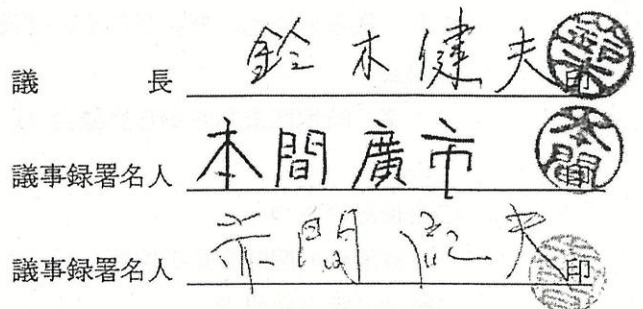 議長 鈴木健夫 印
議事録署名人 本間廣市
議事録署名人 間紀夫 印